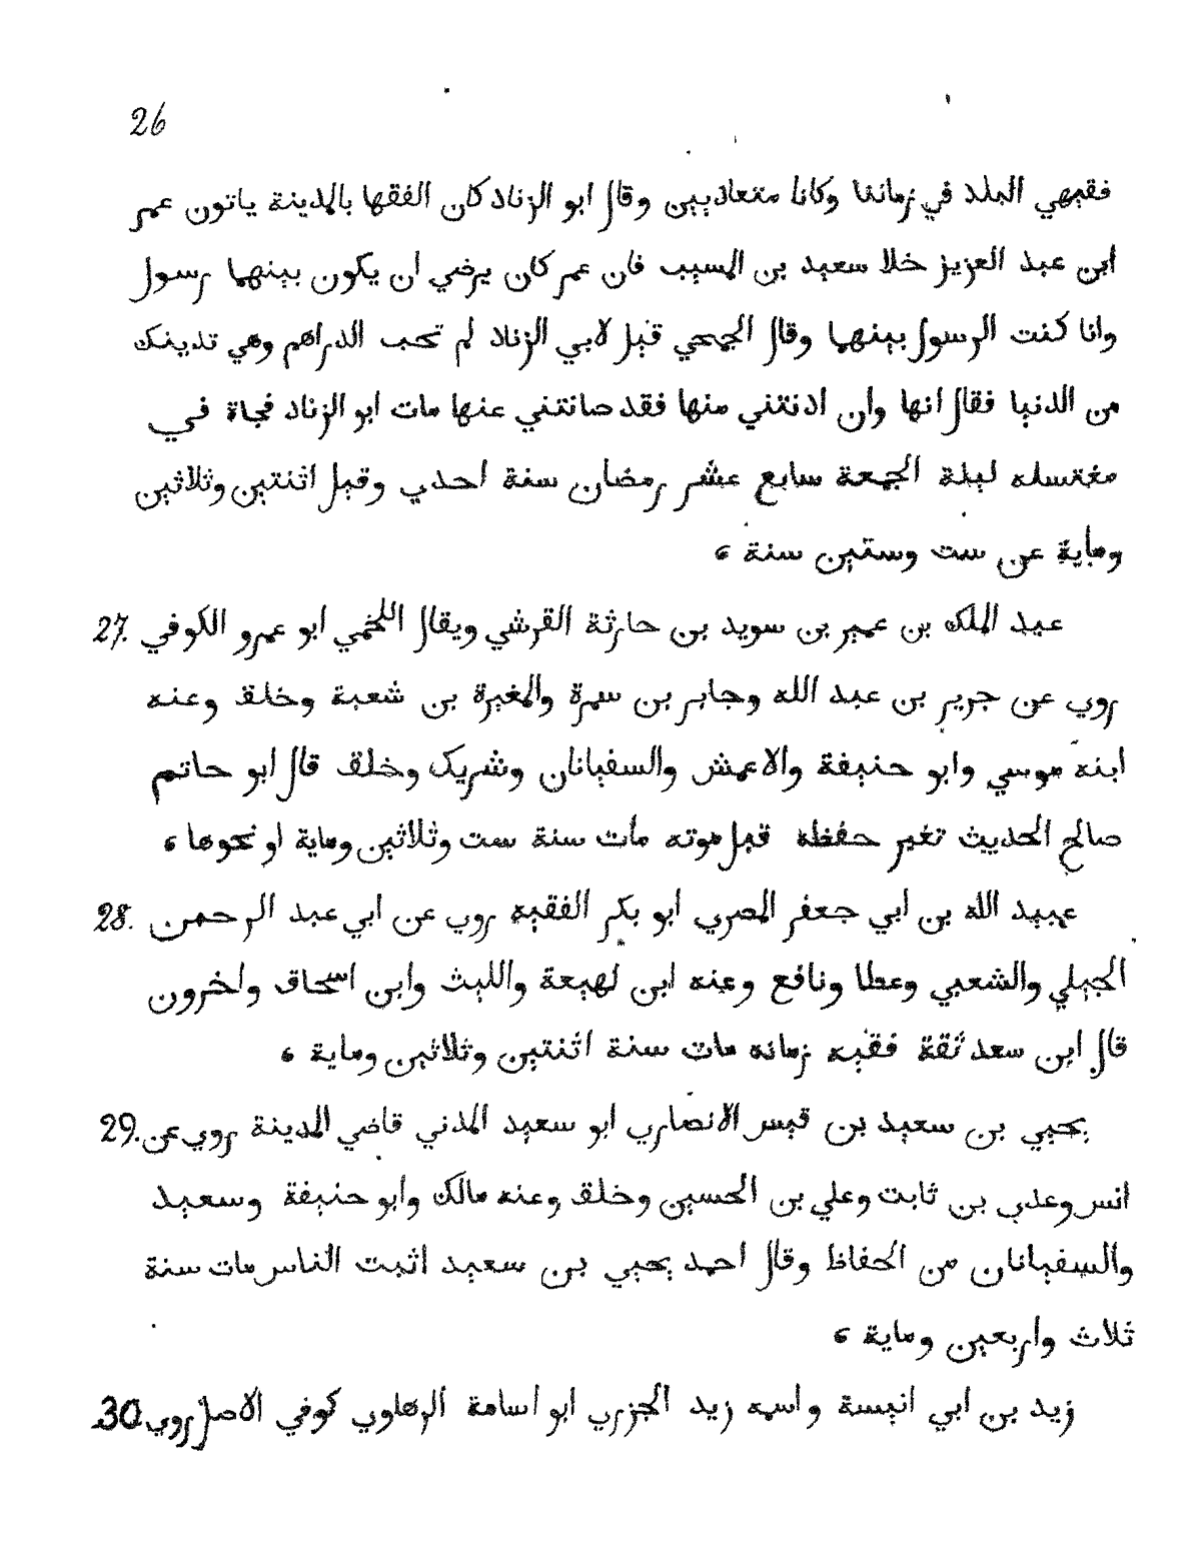 26
فقيهي البلد في زماننا وكانا متعاديين وقال ابو الزناد كان الفقها بالمدينة ياتون عمر
ابن عبد العزيز خلا سعيد بن المسيب فان عمر كان يرضي ان يكون بينهما رسول
وانا كنت الرسول بينهما وقال الجمحي قيل لابي الزناد لم تحب الدراهم وهي تدينك
من الدنيا فقال انها وان ادنتني منها فقد صانتني عنها مات ابو الزناد فجاة في
مغتسله ليلة الجمعة سابع عشر رمضان سنة احدي وقيل اثنتين وثلاثين
وماية عن ست وستين سنة ء
27. عبد الملك بن عمير بن سويد بن حارثة القرشي ويقال اللخمي ابو عمرو الكوفي
روي عن جرير بن عبد الله وجابر بن سمرة والمغيرة بن شعبة وخلق وعنه
ابنه موسي وابو حنيفة والاعمش والسفيانان وشريك وخلق قال ابو حاتم
صالح الحديث تغير حفظه قبل موته مات سنة ست وثلاثين وماية او نحوها ء
28. عبيد الله بن ابي جعفر المصري ابو بكر الفقيه روي عن ابي عبد الرحمن
الجبلي والشعبي وعطا ونافع وعنه ابن لهيعة والليث وابن اسحاق واخرون
قال ابن سعد ثقة فقيه زمانه مات سنة اثنتين وثلاثين وماية ء
29. يحيي بن سعيد بن قيس الانصاري ابو سعيد المدني قاضي المدينة روي عن
انس وعدي بن ثابت وعلي بن الحسين وخلق وعنه مالك وابو حنيفة وسعيد
والسفيانان من الحفاظ وقال احمد يحيي بن سعيد اثبت الناس مات سنة
ثلاث واربعين وماية ء
30. زيد بن ابي انيسة واسمه زيد الجزري ابو اسامة الرهاوي كوفي الاصل روي